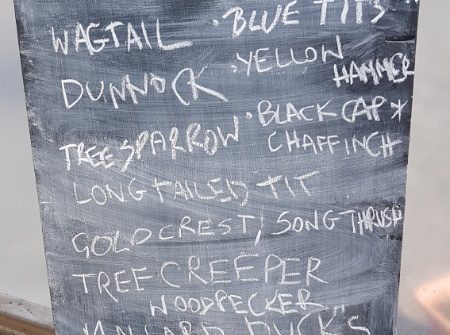 WAGTAIL · BLUE TITS
DUNNOCK · YELLOW HAMMER
TREE SPARROW · BLACK CAP *
CHAFFINCH
LONG TAILED TIT
GOLDCREST, SONG THRUSH
TREE CREEPER
WOODPECKER
MALLARD DUCKS